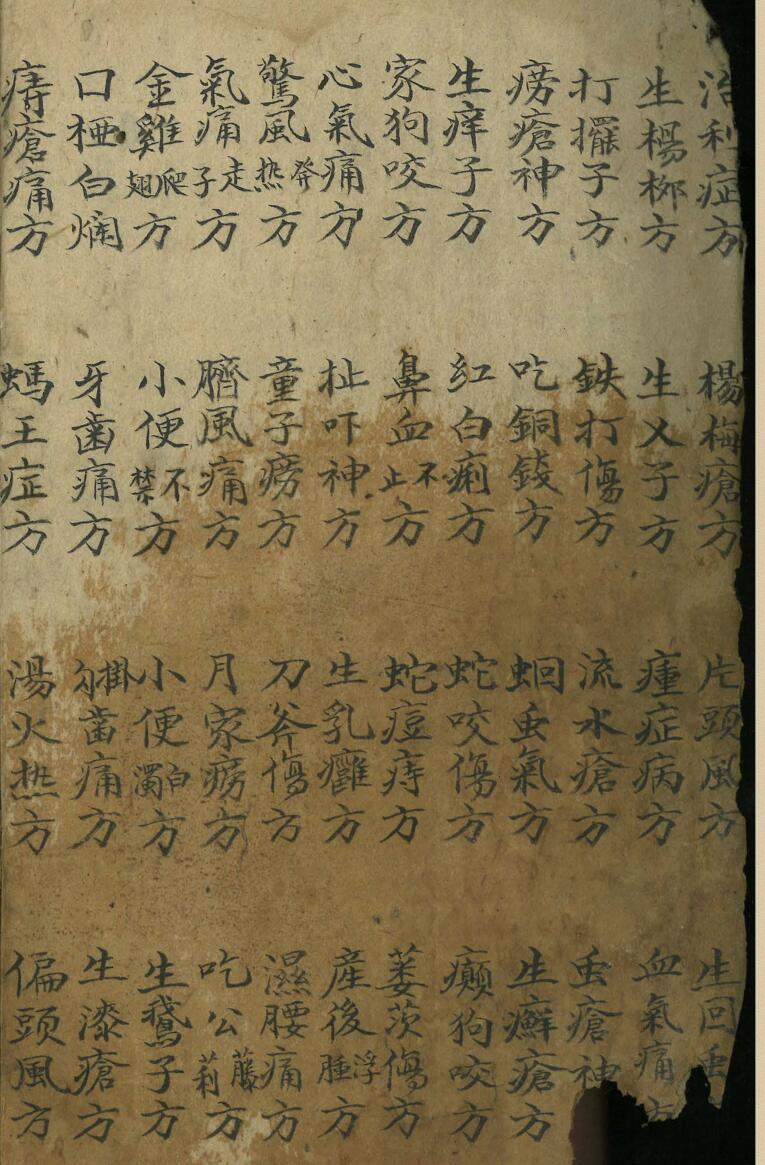 治利症方 楊梅瘡方 片頭風方 生回虫
生楊柳方 生乂子方 瘇症病方 血氣痛方
打擺子方 鉄打傷方 流水瘡方 虫瘡神
痨瘡神方 吃銅錢方 蛔虫氣方 生癬瘡方
生痒子方 紅白痢方 蛇咬傷方 癲狗咬方
家狗咬方 鼻血不止方 蛇痘痔方 蒌茨傷方
心氣痛方 扯吓神方 生乳癰方 産後浮腫方
驚風發热方 童子痨方 刀斧傷方 濕腰痛方
氣痛走子方 臍風痛方 月家痨方 吃公藤莉方
金雞爬翅方 小便不禁方 小便白濁方 生鵞子方
口桠白爛 牙齒痛方 掛齒痛方 生漆瘡方
痔瘡痛方 螞王症方 湯火热方 偏頭風方